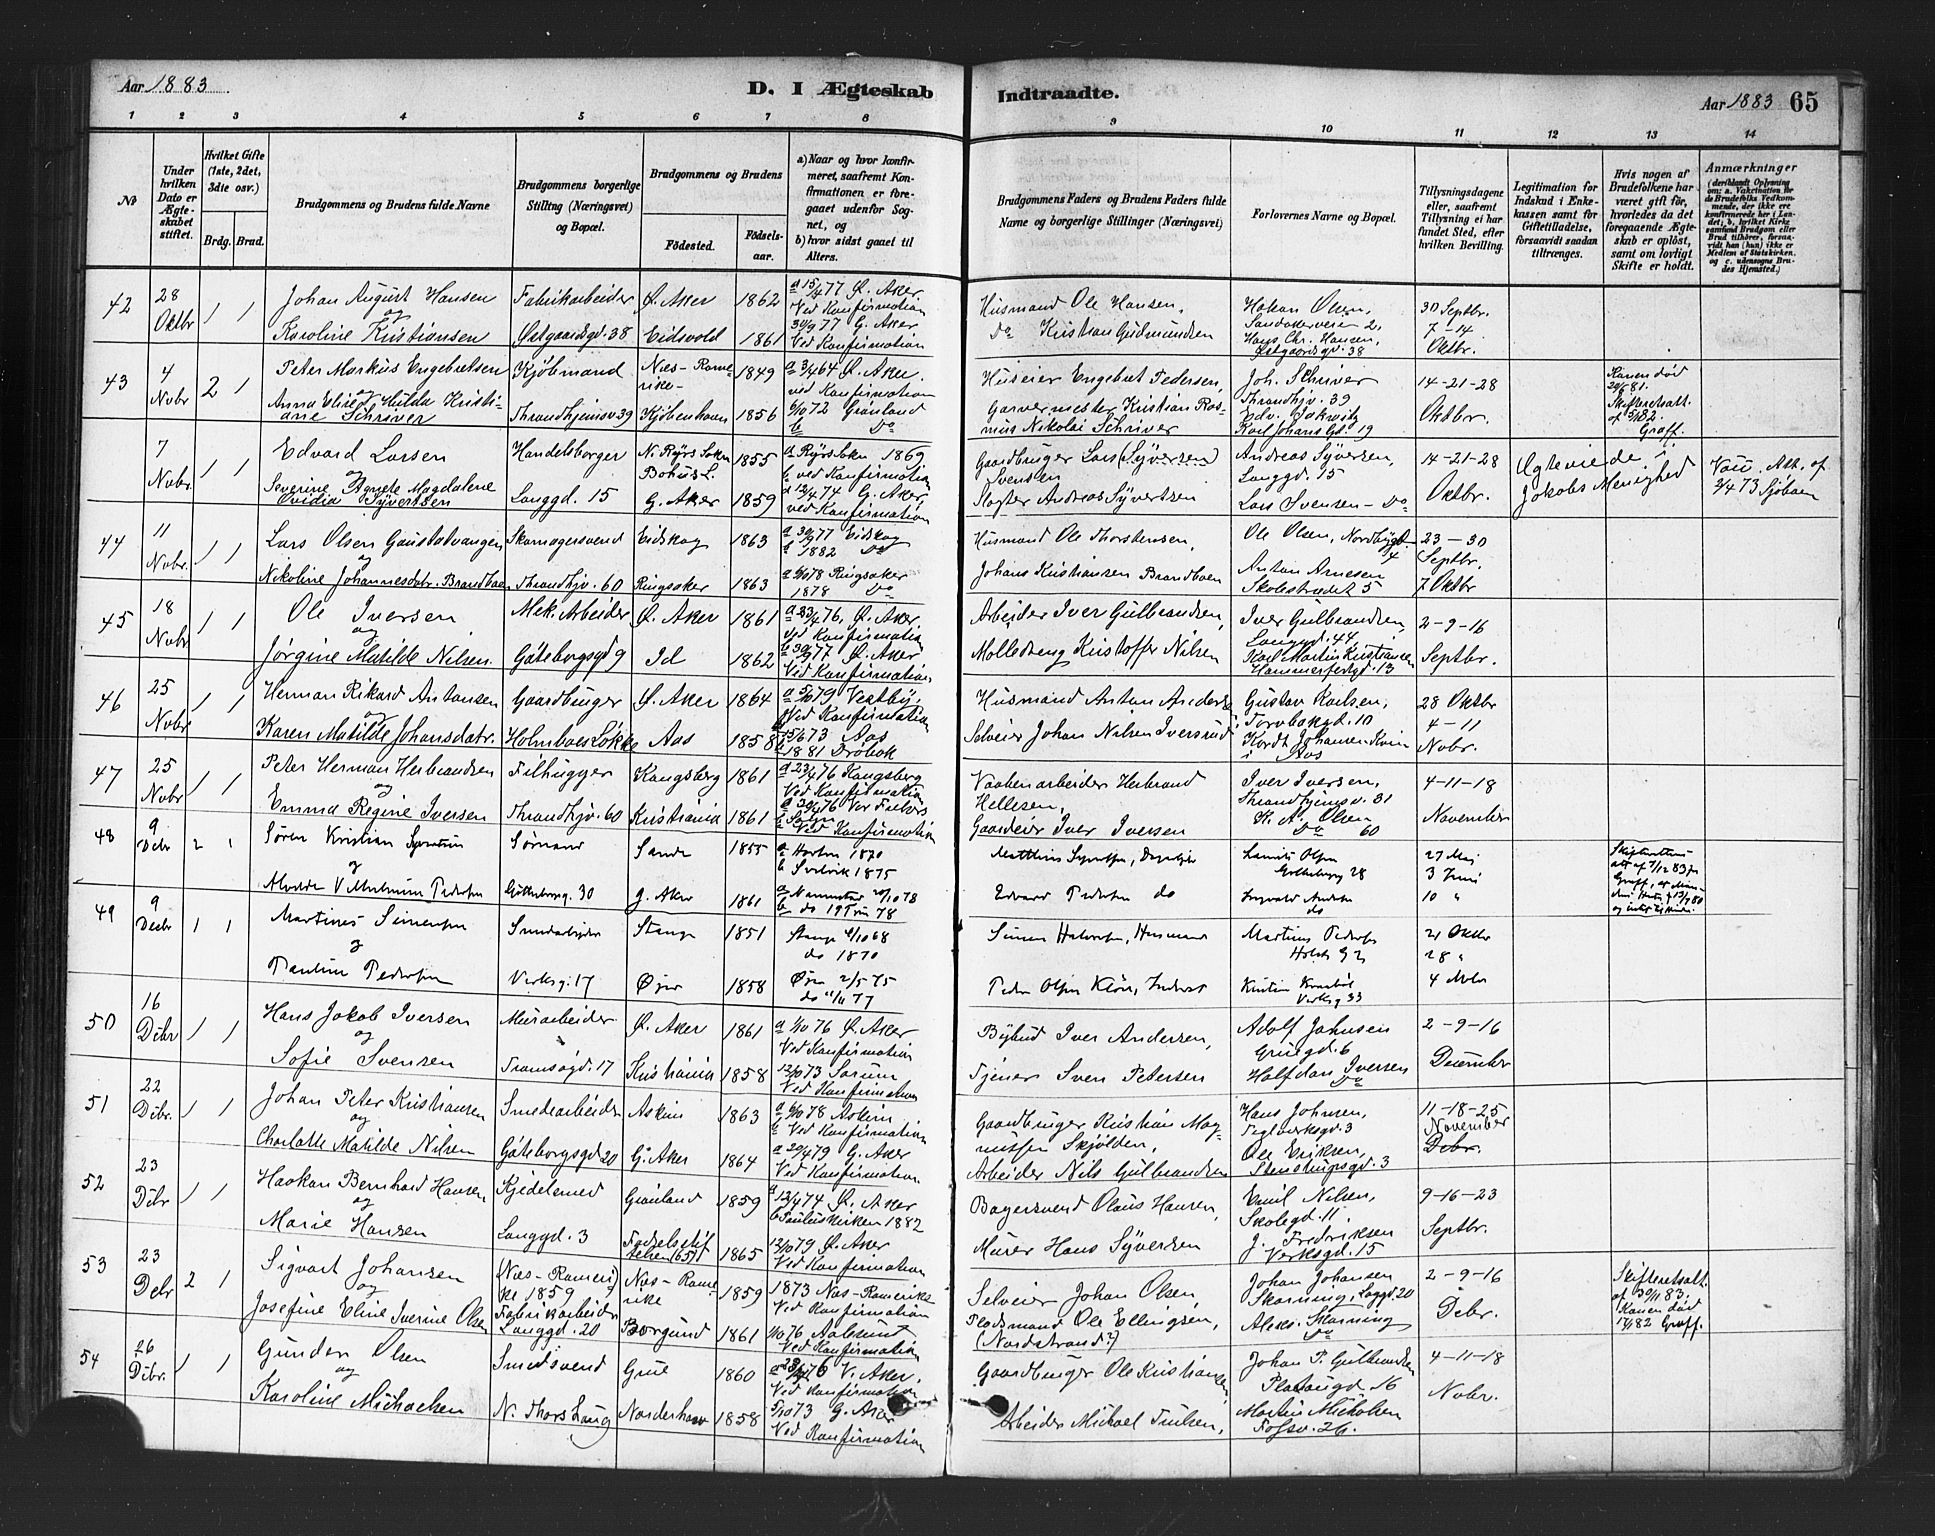 Aar 1883.
D. I Ægteskab
1 2 3 4 5 6 7 8
No
Under hvilken Dato er Ægteskabet stiftet.
Hvilket Gifte (1ste, 2det, 3die osv.)
Brdg. Brud.
Brudgommens og Brudens fulde Navne
Brudgommens borgerlige Stilling (Næringsvei) og Bopæl.
Brudgommens og Brudens
Fødested. Fødselsaar.
a) Naar og hvor konfirmeret, saafremt Konfirmationen er foregaaet udenfor Sognet, og
b) hvor sidst gaaet til Alters.
42 28 Oktbr 1 1 Johan August Hansen Fabrikarbeider Ø. Aker 1862 a 15/4 77 Ø. Aker
og Ved Konfirmation
Karoline Kristiansen Østgaardsgd. 38 Eidsvold 1861 30/9 77 G. Aker
Ved Konfirmation
43 4 Novbr 2 1 Peter Markus Engebretsen Kjøbmand Næs-Romerike- 1849 a 3/4 64 Ø. Aker.
og ved Konfirmation
Anna Elise Hilda Kristiane Schriver Throndhjemsv 39 Kjøbenhavn 1856 6/10 72 Grønland
b Do
7 Novbr. 1 1 Edvard Larsen Handelsborger N. Ryrs Sokn Bohus L. 1855 a Ryrs Sokn 1869
og b ved Konfirmation
Severine Agnete Magdalene Ovidia Syvertsen Langgd. 15 G. Aker 1859 a 12/4 74 G. Aker
ved Konfirmation
44 11 Novbr. 1 1 Lars Olsen Gaustadvangen Skomagersvend Eidskog 1863 a 30/9 77 Eidskog
og b 1882 Do
Nikoline Johannesdatr. Brandboen Throndhjv. 60 Ringsaker 1863 a 6/10 78 Ringsaker
1878 Do
45 18 Novbr 1 1 Ole Iversen Mek. Arbeider Ø. Aker 1861 a 23/4 76, Ø. Aker
og Ved Konfirmation
Jørgine Matilde Nilsen. Göteborgsgd 9 Id 1862 30/9 77 Ø. Aker
Ved Konfirmation
46 25 Novbr 1 1 Herman Rikard Antonsen Gaardbruger Ø. Aker 1864 a 5/10 79 Vestby,
og Ved Konfirmation
Karen Matilde Johansdatr. Holmboes Løkke Aas 1858 15/6 73 Aas
1881 Drøbak
47 25 Novbr 1 1 Peter Herman Herbrandsen Filhugger Kongsberg 1861 a 23/4 76 Kongsberg
og Ved Konfirmation
Emma Regine Iversen Throndhjv. 60 Kristiania 1861 a 20/4 76 Vor Frelsers
b Ved Konfirmation
48 9 Debr 2 1 Søren Kristian Syvertsen Sømand Sande 1855 a Horten 1870
og b Svelvik 1875
Alvilde Vilhelmine Pedersen Gøtheborg. 30 G. Aker 1861 a 20/10 78
b do 78
49 9 Decbr 1 1 Martines Simensen Smedarbeider Stange 1851 Stange 4/10 68
og do 1870
Pauline Pedersen Verksg. 17 Øjer 1858 Øjer 2/5 75
do 11/11 77
50 16 Debr 1 1 Hans Jakob Iversen Murarbeider Ø. Aker 1861 a 1/10 76 Ø. Aker
og Ved Konfirmation
Sofie Svensen Tromsøgd. 17 Kristiania 1858 12/10 73 Sørum
Ved Konfirmation
51 22 Debr. 1 1 Johan Peter Kristiansen Smedearbeider Askim 1863 a 6/10 78 Askim
og b Ved Konfirmation
Charlotte Matilde Nilsen Göteborgsgd 20 G. Aker 1864 a 20/4 79 G. Aker
Ved Konfirmation
52 23 Debr 1 1 Haakon Bernhard Hansen, Kjedelsmed Grønland 1859 a 12/4 74 Ø. Aker
og b Pauluskirken 1882
Marie Hansen Langgd. 3 Fødselsstiftelsen (657) 1865 12/10 79 Ø. Aker
Ved Konfirmation
53 23 Debr 2 1 Sigvart Johansen (Næs-Romerike 1859) Næs-Romerike 1859 1873 Næs-Romerike
og Fabrikarbeider Ved Konfirmation
Josefine Eline Iverine Olsen Langgd. 20 Borgund 1861 1/10 76 Aalesund
Ved Konfirmation
54 26 Debr. 1 1 Gunder Olsen Smedsvend Grue 1860 a 23/4 76 V. Aker.
og Ved Konfirmation
Karoline Michaelsen N. Thorshaug Norderhov 1858 5/10 73 G. Aker
Ved Konfirmation
Indtraadte.
Aar 1883 65
9 10 11 12 13 14
Brudgommens Faders og Brudens Faders fulde Navne og borgerlige Stillinger (Næringsvei)
Forlovernes Navne og Bopæl.
Tillysningsdagene eller, saafremt Tillysning ei har fundet Sted, efter hvilken Bevilling.
Legitimation for Indskud i Enkekassen samt for Giftetilladelse, forsaavidt saadan tiltrænges.
Hvis nogen af Brudefolkene har været gift før, hvorledes da det foregaaende Ægteskab er opløst, samt om lovligt Skifte er holdt.
Anmærkninger
(deriblandt Oplysning om: a. Vaccination for de Brudefolks Vedkommende, der ikke ere konfirmerede her i Landet; b. hvilket Kirkesamfund Brudgom eller Brud tilhører, forsaavidt han (hun) ikke er Medlem af Statskirken, og c. udensogns Brudes Hjemsted.)
Husmand Ole Hansen, Hakon Olsen, 30 Septbr.
Sandakerveien 2, 7-14
Do Kristian Gudmundsen Hans Chr. Hansen, Oktbr.
Østgaardsgd. 38
Huseier Engebret Pedersen, Joh. Schriver 14-21-28 Konen død
Throndhjv. 39 20/9 81.
Garvermester Kristian Rasmus Nikolai Schriver Edv. Jakwitz Oktbr. Skifteretsatt. af 5/1 82.
Karl Johans Gd. 19 Graff.
Gaardbruger Lars (Syversen) Svensen Andreas Syversen, 14-21-28 Ægteviede i Vacc. Att. af
Langgd. 15 Jakobs Menighed 3/4 73 Sjöboen
Slagter Andreas Syvertsen Lars Svensen - Do Oktbr.
Husmand Ole Thorstensen, Ole Olsen, Nordbygd. 4 23-30 Septbr.
Johans Kristiansen Brandboen Anton Arnesen Skolestrædet 5 7 Oktbr
Arbeider Iver Gulbrandsen, Iver Gulbrandsen, 2-9-16
Langgd. 44
Kristoffer Nilsen Karl Martin Kristiansen Septbr.
Hammerfestgd. 13
Husmand Anton Anders Gustav Karlsen, 28 Oktbr
Torvbakgd. 10 4-11
Selveier Johan Nilsen Iversrud Johansen i Aas Novbr.
Vaabenarbeider Herbrand Hellesen, Iver Iversen, 4-11-18
Throndhjemsv. 31
Gaardeier Iver Iversen K. A. Olsen November
Do 60
Matthias Syvertsen, Olsen 27 Mai
Gøtheborg 28 3 Juni
Edvard Pedersen do do 10 "
Simen Halvorsen, Husmand Martines Pedersen 21 Oktbr
28 "
Peder Olsen Verksg 33 4 Novbr
Bybud Iver Andersen, Adolf Johnsen 2-9-16
Gruegd. 6
Tjener Sven Petersen Halfdan Iversen December
Do
Gaardbruger Kristian Magnussen Skjolden, Hans Johnsen, 11-18-25
Teglverksgd. 3 November
Arbeider Nils Gulbrandsen Ole Eriksen, Debr.
Stenstrupsgd. 3
Bagersvend Olaus Hansen, Emil Nilsen, 9-16-23
Skolegd. 11,
Murer Hans Syversen J. Fredriksen Septbr.
Verksgd. 15
Selveier Johan Olsen, Johan Johansen 2-9-16 Skifteretsatt.
Skarning, Laggd. 20 af 30/11 83.
Flodsmand Ole Ellingsen, Aleks. Skarning Debr. Konen død
(Nordstrand?) Do 17/1 82 Graff.
Gaardbruger Ole Kristiansen Johan P. Gulbrandsen 4-11-18
Platougd. 16
Arbeider Michael Paulsen, Martin Mickelsen Novbr.
Fossv. 26.